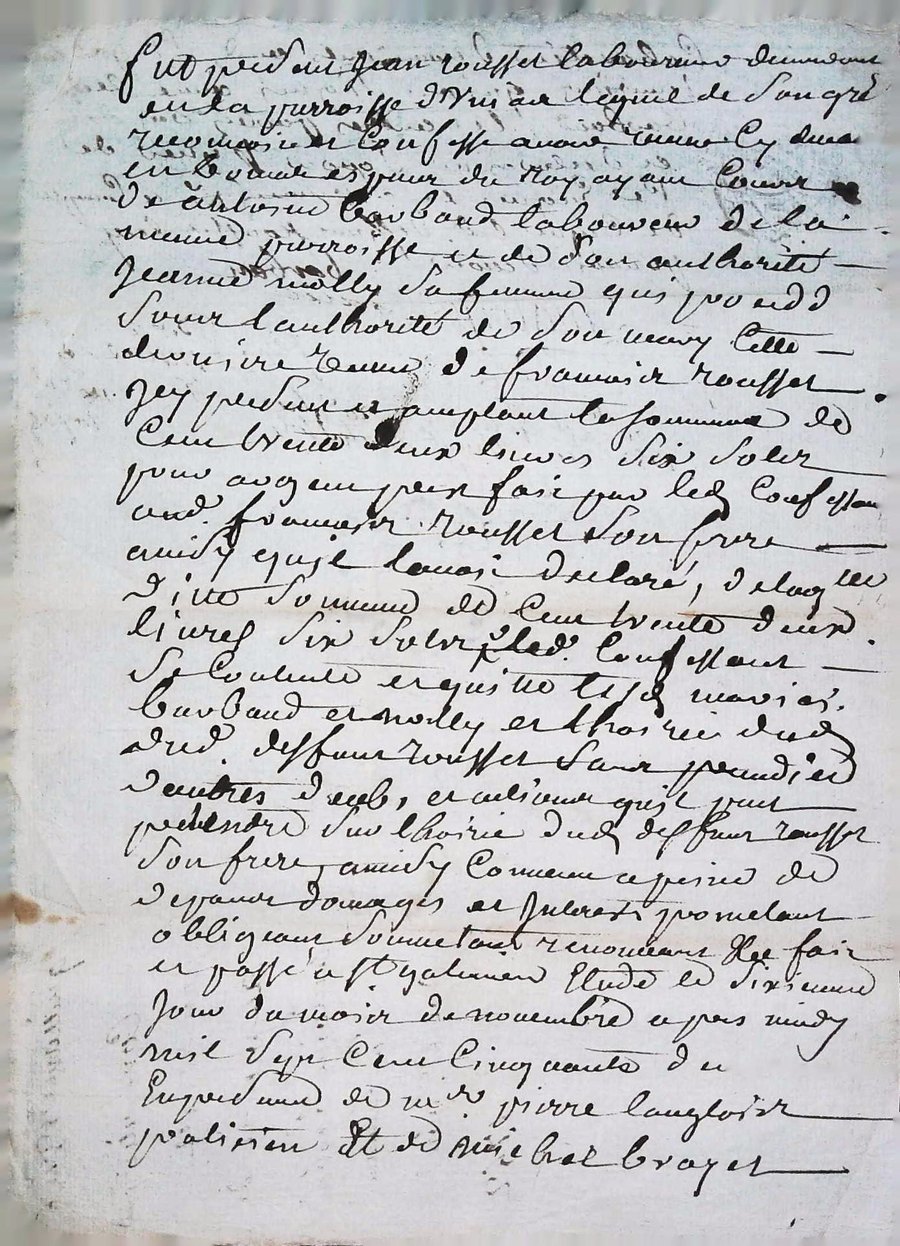 Fut présent Jean rousset laboureur demeurant
en la parroisse d' lequel de son gré
reconnoist et Confesse avoir receu Cy deva
en bonnes espèces du Roy ayant Cours
de antoine barbaud laboureur de la
meme parroisse et de son authorité
Jeanne molly sa femme qui procedd
sous l'authorité de son mary Cette
derniere veuve de francois rousset
Icy present et acceptant la somme de
Cent trente deux livres six solz
pour avoir par led Confessant
aud. francois rousset son frere
ainsy quil lavoit declaré, de laqlle
ditte somme de Cent trente deux
livres six solz led. Confessant
se Contente et quitte lesd mariés.
barbaud et molly et lhoirie dud
dud. deffunt rousset sans prejudice
d'autres droits, et actions quil peut
pretendre sur lhoirie dud deffunt rousset
son frere, ainsy Convenu a peine de
depans domages et Interests prometant
obligeant soumetant renonceant &ca fait
et passé a St galmier Etude le sixieme
Jour du mois de novembre apres midy
mil sept Cent Cinquante
En presence de mre pierre langlois
praticien Et de michel brayet